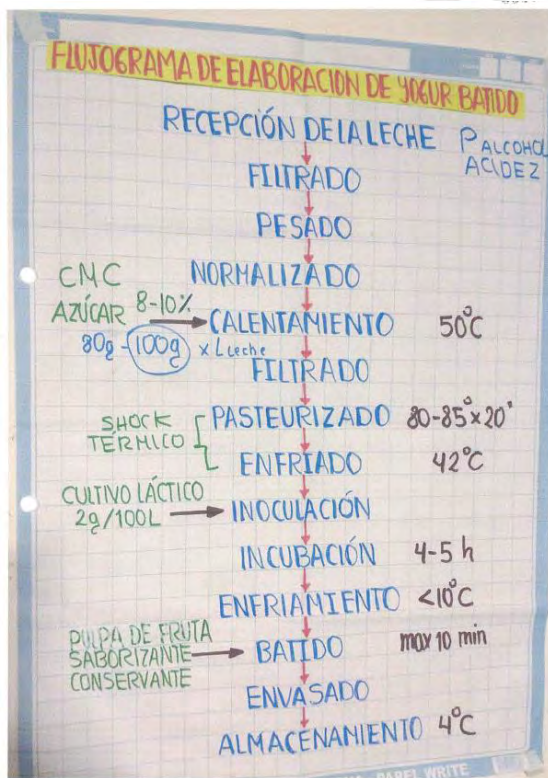 FLUJOGRAMA DE ELABORACION DE YOGUR BATIDO
RECEPCIÓN DE LA LECHE
P ALCOHOL
ACIDEZ
FILTRADO
PESADO
NORMALIZADO
CMC
AZÚCAR 8-10%
80g - 100g x L leche
CALENTAMIENTO 50°C
FILTRADO
SHOCK
TERMICO
PASTEURIZADO 80-85° x 20'
ENFRIADO 42°C
CULTIVO LÁCTICO
2g/100L
INOCULACIÓN
INCUBACIÓN 4-5 h
ENFRIAMIENTO <10°C
PULPA DE FRUTA
SABORIZANTE
CONSERVANTE
BATIDO max 10 min
ENVASADO
ALMACENAMIENTO 4°C
PAPEL WRITE